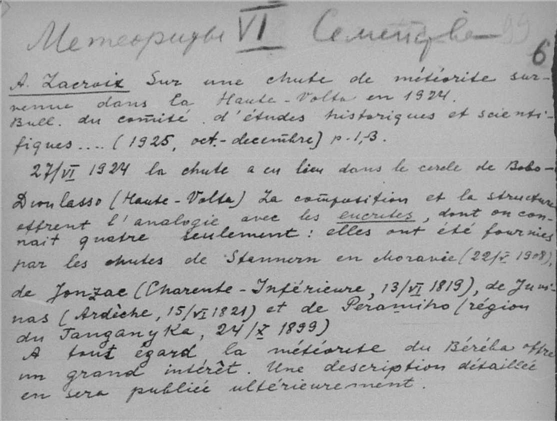 Метеориды VI
6
A. Lacroix Sur une chute de météorite sur-
venue dans la Haute-Volta en 1924.
Bull. du comité d'études historiques et scienti-
fiques.... (1925, oct.-decembre) p. 1,-3.
27/VI 1924 la chute a eu lieu dans le cercle de Bobo-
Dioulasso (Haute-Volta) La composition et la structure
offrent l'analogie avec les eucrites, dont on con-
nait quatre seulement: elles ont été fournies
par les chutes de Stannern en Moravie (22/V 1908),
de Jonzac (Charente-Inférieure, 13/VI 1819), de Juvi-
nas (Ardèche, 15/VI 1821) et de Peramiho (région
du Tanganyka, 24/X 1899)
A tout égard la météorite du Béréba offre
un grand intérêt. Une description détaillée
en sera publiée ultérieurement.